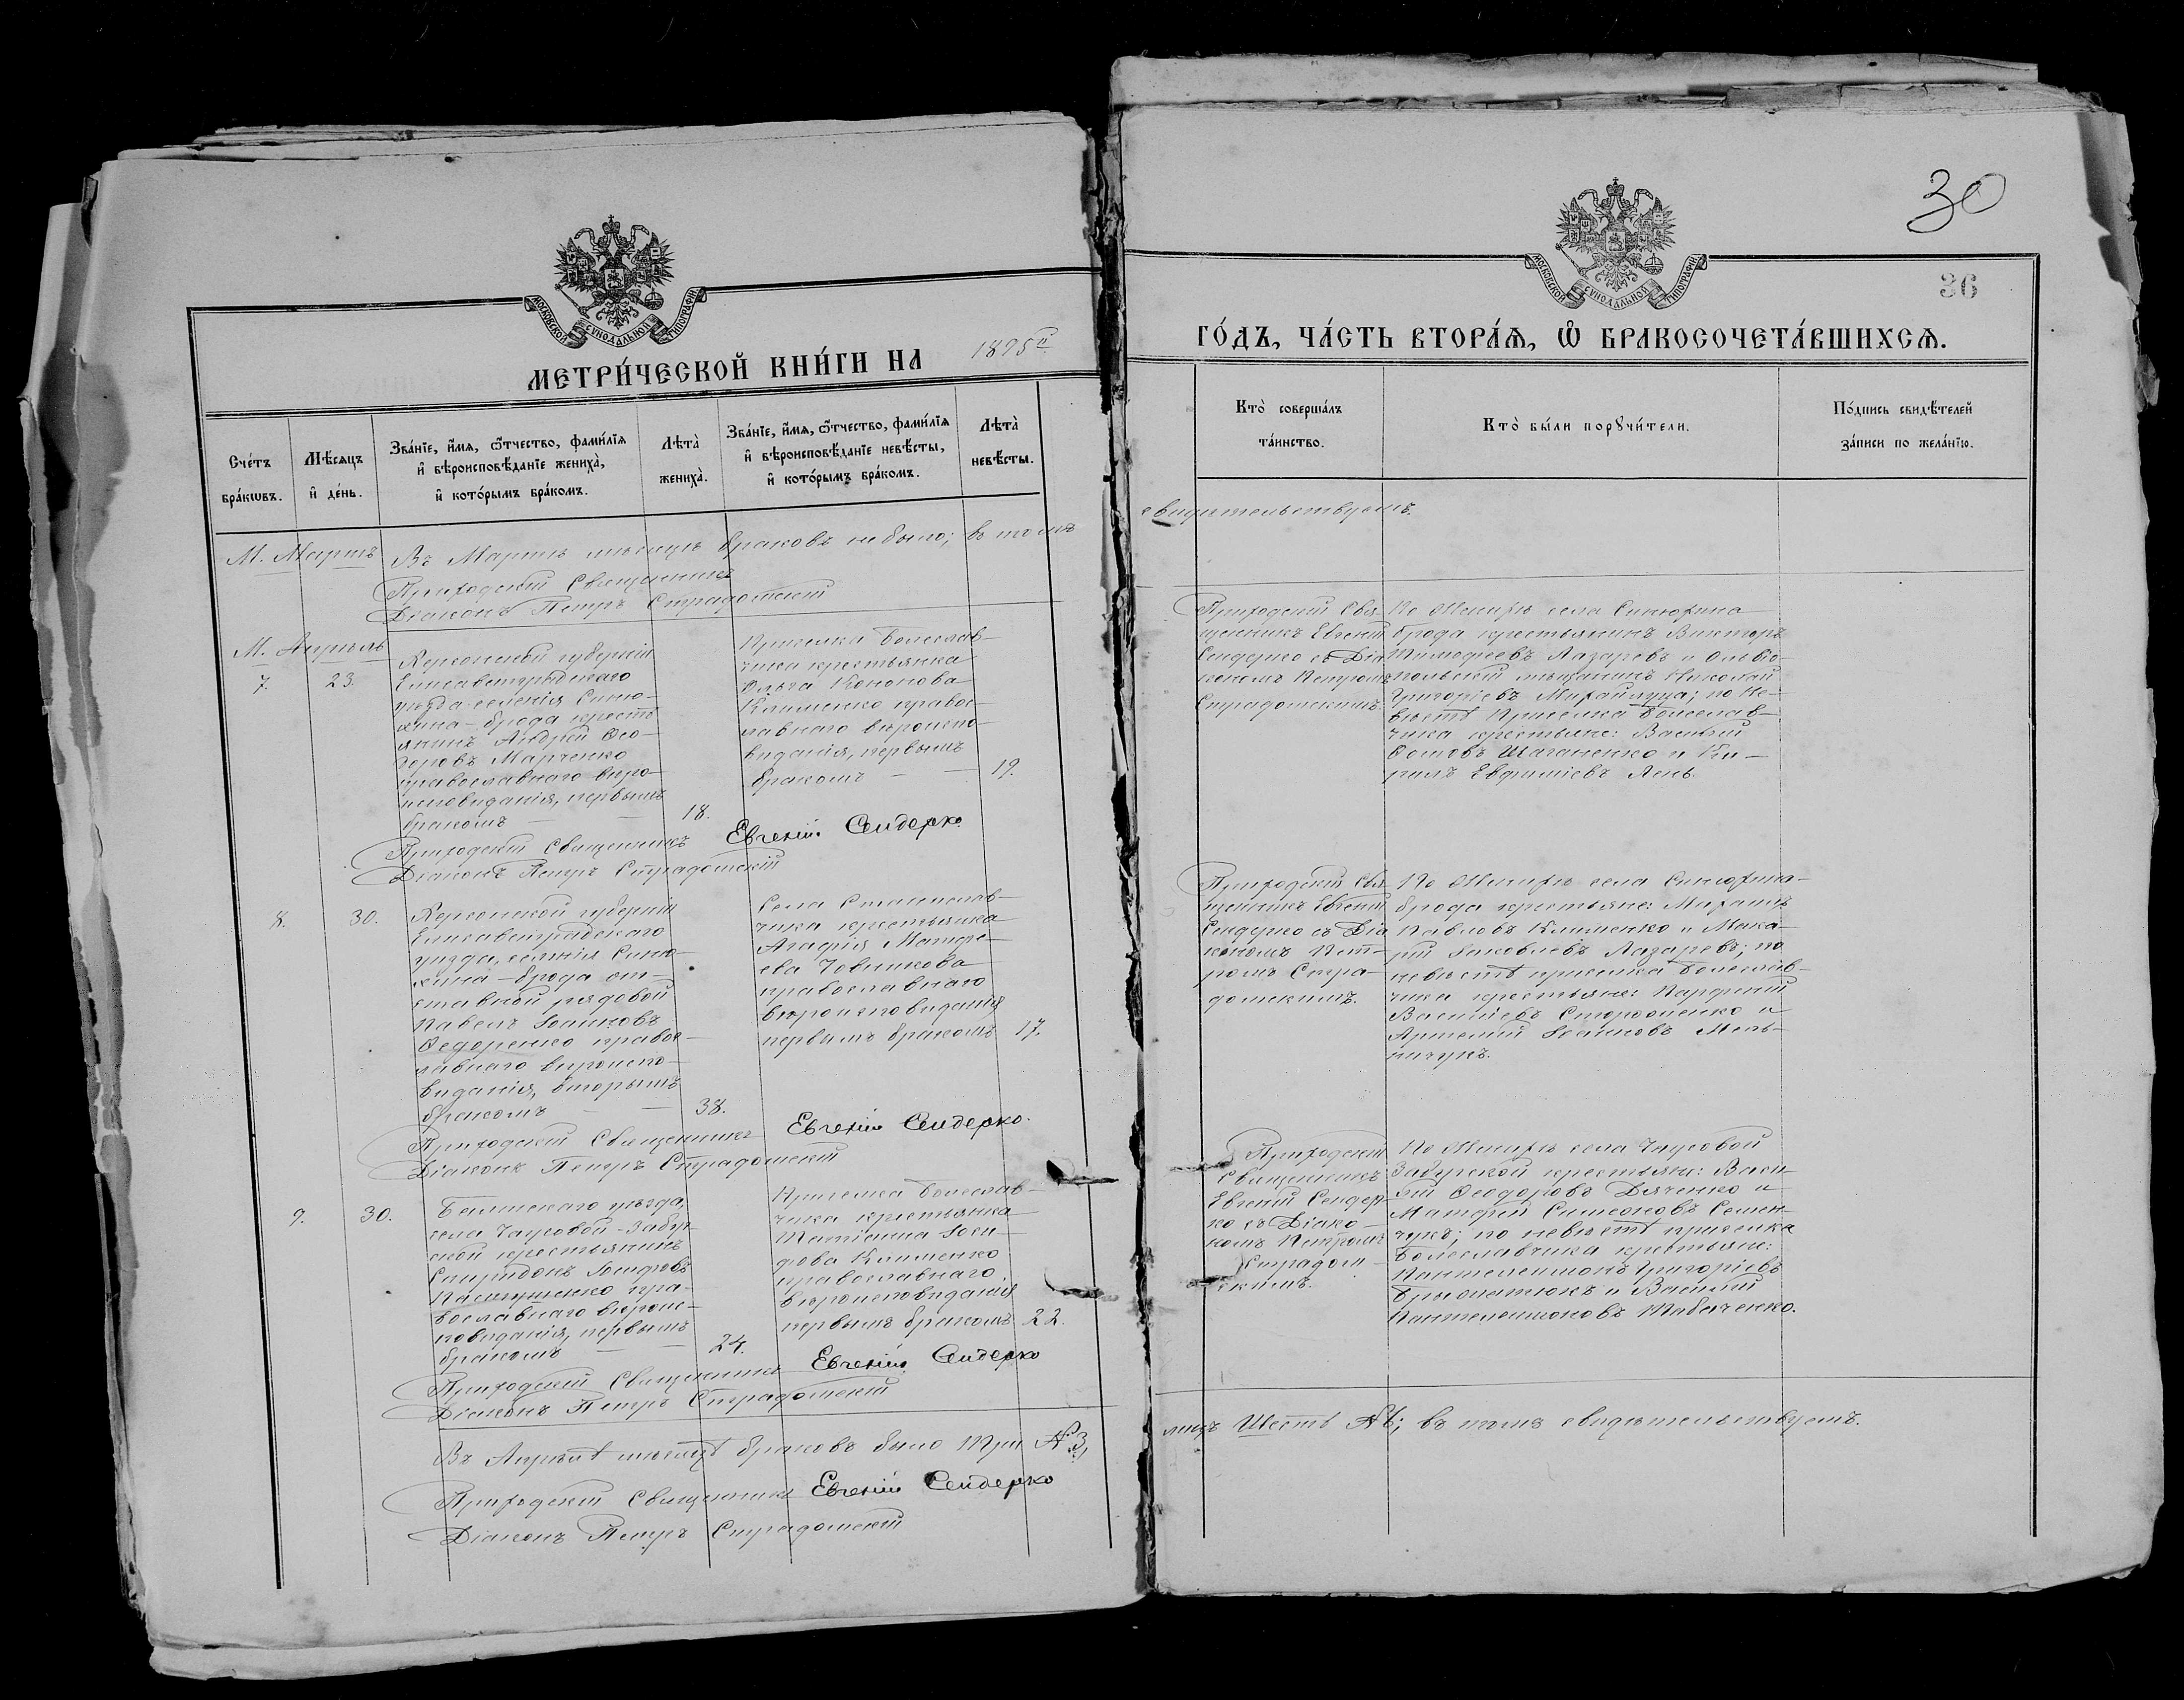 30
36
МОСКОВСКОЙ СУНОДАЛЬНОЙ ТИПОГРАФІИ
МОСКОВСКОЙ СУНОДАЛЬНОЙ ТИПОГРАФІИ
МЕТРИ́ЧЕСКОЙ КНИ́ГИ НА 1895й
ГО́ДЪ, ЧА́СТЬ ВТОРА́Ѧ, Ѽ БРАКОСОЧЕТА́ВШИХСѦ.
Сче́тъ бра́кѡвъ.
Мѣ́сяцъ и҆ де́нь.
Зва́нїе, и҆́мѧ, ѻ҆́тчество, фами́лїѧ
и҆ вѣроисповѣ́данїе жениха̀,
и҆ кото́рымъ бра́комъ.
Лѣта̀ жениха̀.
Зва́нїе, и҆́мѧ, ѻ҆́тчество, фами́лїѧ
и҆ вѣроисповѣ́данїе невѣ́сты,
и҆ кото́рымъ бра́комъ.
Лѣта̀ невѣ́сты.
Кто̀ соверша́лъ
та́инство.
Кто̀ бы́ли порꙋчи́тели.
По́дпись свидѣ́телей
за́писи по жела́нїю.
М. Мартъ
Въ Мартѣ мѣсяцѣ браковъ не было; въ томъ
свидѣтельствуемъ.
Приходскій Священникъ
Діаконъ Петръ Страдомскій
М. Апрѣль
7.
23.
Херсонской губерніи
Елисаветградскаго
уѣзда селенія Синю-
хина-брода кресть
янинъ Андрей Ѳео-
доровъ Марченко
православнаго вѣро-
исповѣданія, первымъ
бракомъ — —
18.
Приселка Болеслав-
чика крестьянка
Ольга Кононова
Клименко правос-
лавнаго вѣроиспо-
вѣданія, первымъ
бракомъ — —
19.
Приходскій Свя-
щенникъ Евгеній
Сендерко съ Діа
кономъ Петромъ
Страдомскимъ.
По Женихѣ села Синюхина
брода крестьянинъ Викторъ
Тимоѳеевъ Лазаревъ и Ольвіо-
польскій мѣщанинъ Николай
Григоріевъ Михайлуца; по Не-
вѣстѣ Приселка Болеслав-
чика крестьяне: Василій
Ѳомовъ Шаганенко и Ки-
рилъ Евфиміевъ Лень.
Приходскій Священникъ Евгеній Сендерко
Діаконъ Петръ Страдомскій
8.
30.
Херсонской губерніи
Елисаветградскаго
уѣзда, селенія Синю-
хина-брода от-
ставной рядовой
Павелъ Іоанновъ
Ѳедоренко правос-
лавнаго вѣроиспо-
вѣданія, вторымъ
бракомъ — —
38.
Села Станислав-
чика крестьянка
Агафія Матѳе-
ева Човникова
православнаго
вѣроисповѣданія
первымъ бракомъ
17.
Приходскій Свя
щенникъ Евгеній
Сендерко съ Діа
кономъ Пет-
ромъ Стра-
домскимъ.
По Женихѣ села Синюхина-
брода крестьяне: Михаилъ
Павловъ Клименко и Мака-
рій Іаковлевъ Лазаревъ; по
невѣстѣ приселка Болеслав-
чика крестьяне: Парфеній
Василіевъ Стороженко и
Артемій Іоанновъ Мель-
ничукъ.
Приходскій Священникъ Евгеній Сендерко.
Діаконъ Петръ Страдомскій
9.
30.
Балтскаго уѣзда,
села Чаусовой-Забуг-
ской крестьянинъ
Спиридонъ Іосифовъ
пра-
вославнаго вѣроис-
повѣданія, первымъ
бракомъ — —
24.
Приселка Болеслав-
чика крестьянка
Татіанна Іоси-
фова Клименко
православнаго
вѣроисповѣданія
первымъ бракомъ
22.
Приходскій
Священникъ
Евгеній Сендер-
ко съ Діако-
номъ Петромъ
Страдом-
скимъ.
По Женихѣ села Чаусовой
Забугской крестьяне: Васи
лій Ѳеодоровъ Дяченко и
Матѳей Симеоновъ Семен-
чукъ; по невѣстѣ приселка
Болеславчика крестьяне:
Пантелеимонъ Григоріевъ
и Василій
Пантелеимоновъ Табаченко.
Приходскій Священникъ Евгеній Сендерко
Діаконъ Петръ Страдомскій
Въ Апрѣлѣ мѣсяцѣ браковъ было три №3,
лицъ Шесть №6; въ томъ свидѣтельствуемъ.
Приходскій Священникъ Евгеній Сендерко
Діаконъ Петръ Страдомскій